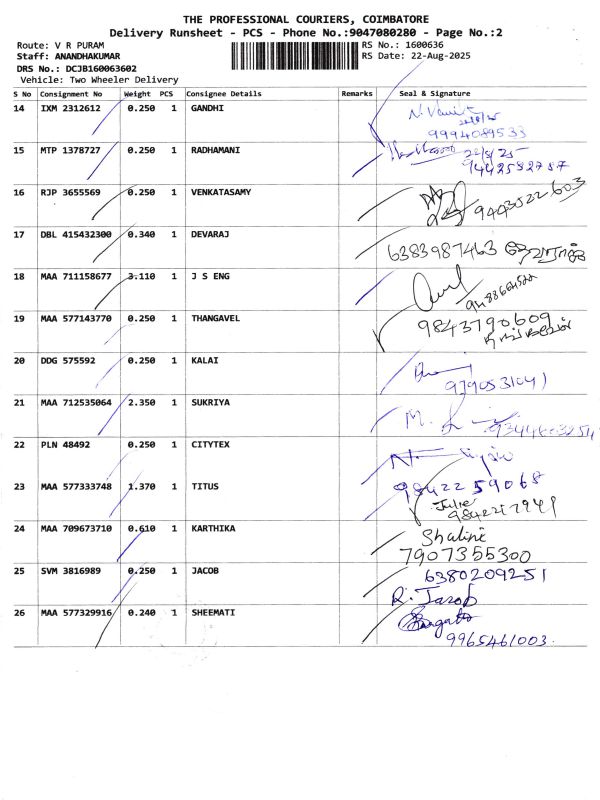 THE PROFESSIONAL COURIERS, COIMBATORE
Delivery Runsheet - PCS - Phone No.:9047080280 - Page No.:2
Route: V R PURAM
RS No.: 1600636
Staff: ANANDHAKUMAR
RS Date: 22-Aug-2025
DRS No.: DCJB160063602
Vehicle: Two Wheeler Delivery
S No Consignment No Weight PCS Consignee Details Remarks Seal & Signature
14 IXM 2312612 0.250 1 GANDHI
9994089533
15 MTP 1378727 0.250 1 RADHAMANI 22/8/25
9442582787
16 RJP 3655569 0.250 1 VENKATASAMY 9403522603
17 DBL 415432300 0.340 1 DEVARAJ 6383987463 தேவராஜ்
18 MAA 711158677 3.110 1 J S ENG
19 MAA 577143770 0.250 1 THANGAVEL 9843790609
தங்கவேல்
20 DDG 575592 0.250 1 KALAI
9790531041
21 MAA 712535064 2.350 1 SUKRIYA M.
22 PLN 48492 0.250 1 CITYTEX
23 MAA 577333748 1.370 1 TITUS 9842259068
Julie
24 MAA 709673710 0.610 1 KARTHIKA Shalini
7907355300
25 SVM 3816989 0.250 1 JACOB 6380209251
R. Jacob
26 MAA 577329916 0.240 1 SHEEMATI
9965461003